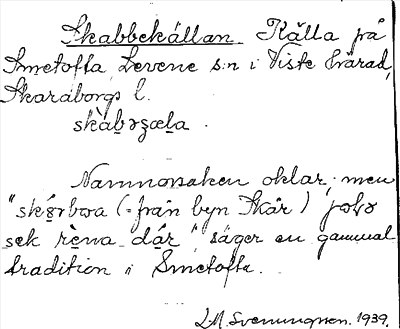 Skabbekällan. Källa på
Smetofta, Levene s:n i Viste härad,
Skaraborgs l.
skàb̲əʒæḷa.
Namnorsaken oklar, men
"sk bwa (= från byn Skär) 
sek rèna dár", säger en gammal
tradition i Smetofta.
L.M. Svenungsson. 1939.